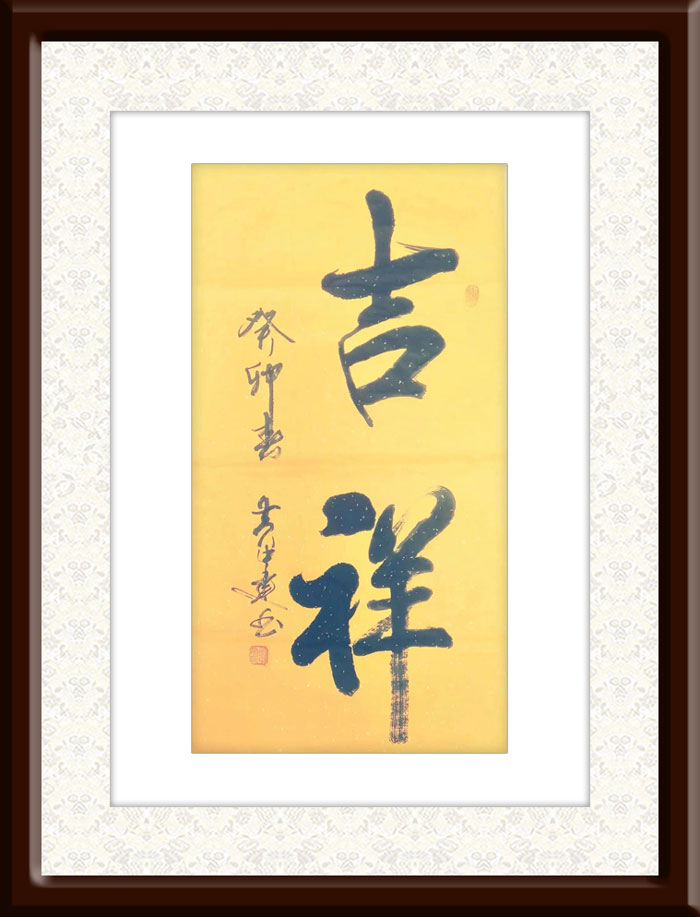 吉祥
癸卯春